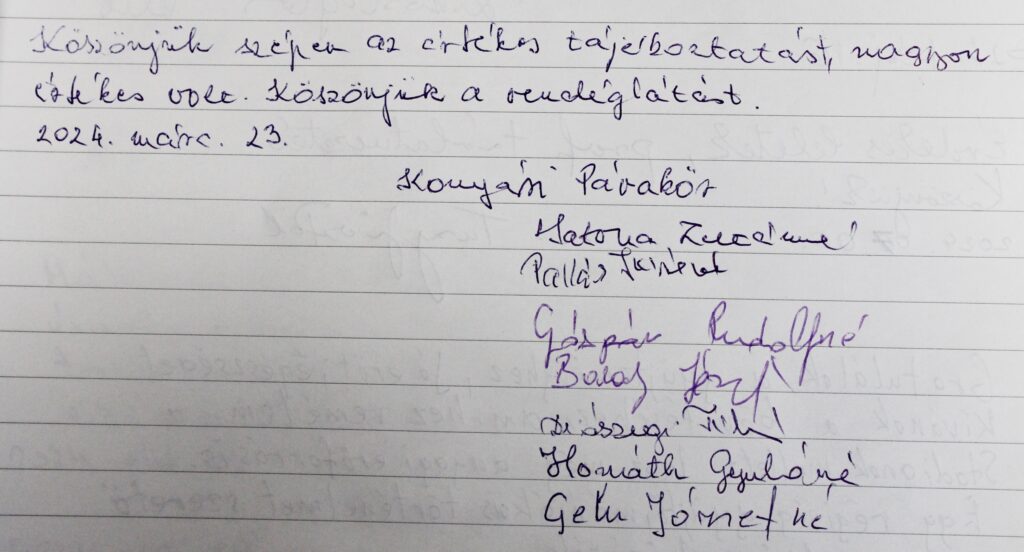 Köszönjük szépen az értékes tájékoztatást, nagyon
értékes volt. Köszönjük a vendéglátást.
2024. márc. 23.
Konyári Pávakör
Katona
Pallás
Gáspár Rudolfné
Balog József
Diószegi
Horváth Gyuláné
József né